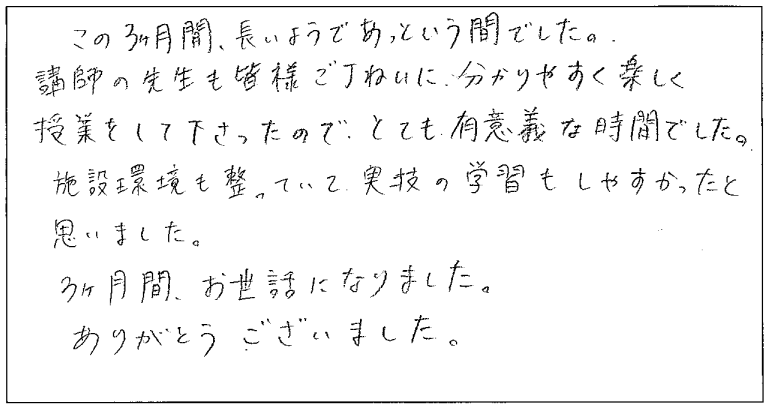 この3ヶ月間、長いようであっという間でした。
講師の先生も皆様ご丁ねいに、分かりやすく楽しく
授業をして下さったので、とても有意義な時間でした。
施設環境も整っていて、実技の学習もしやすかったと
思いました。
3ヶ月間、お世話になりました。
ありがとうございました。